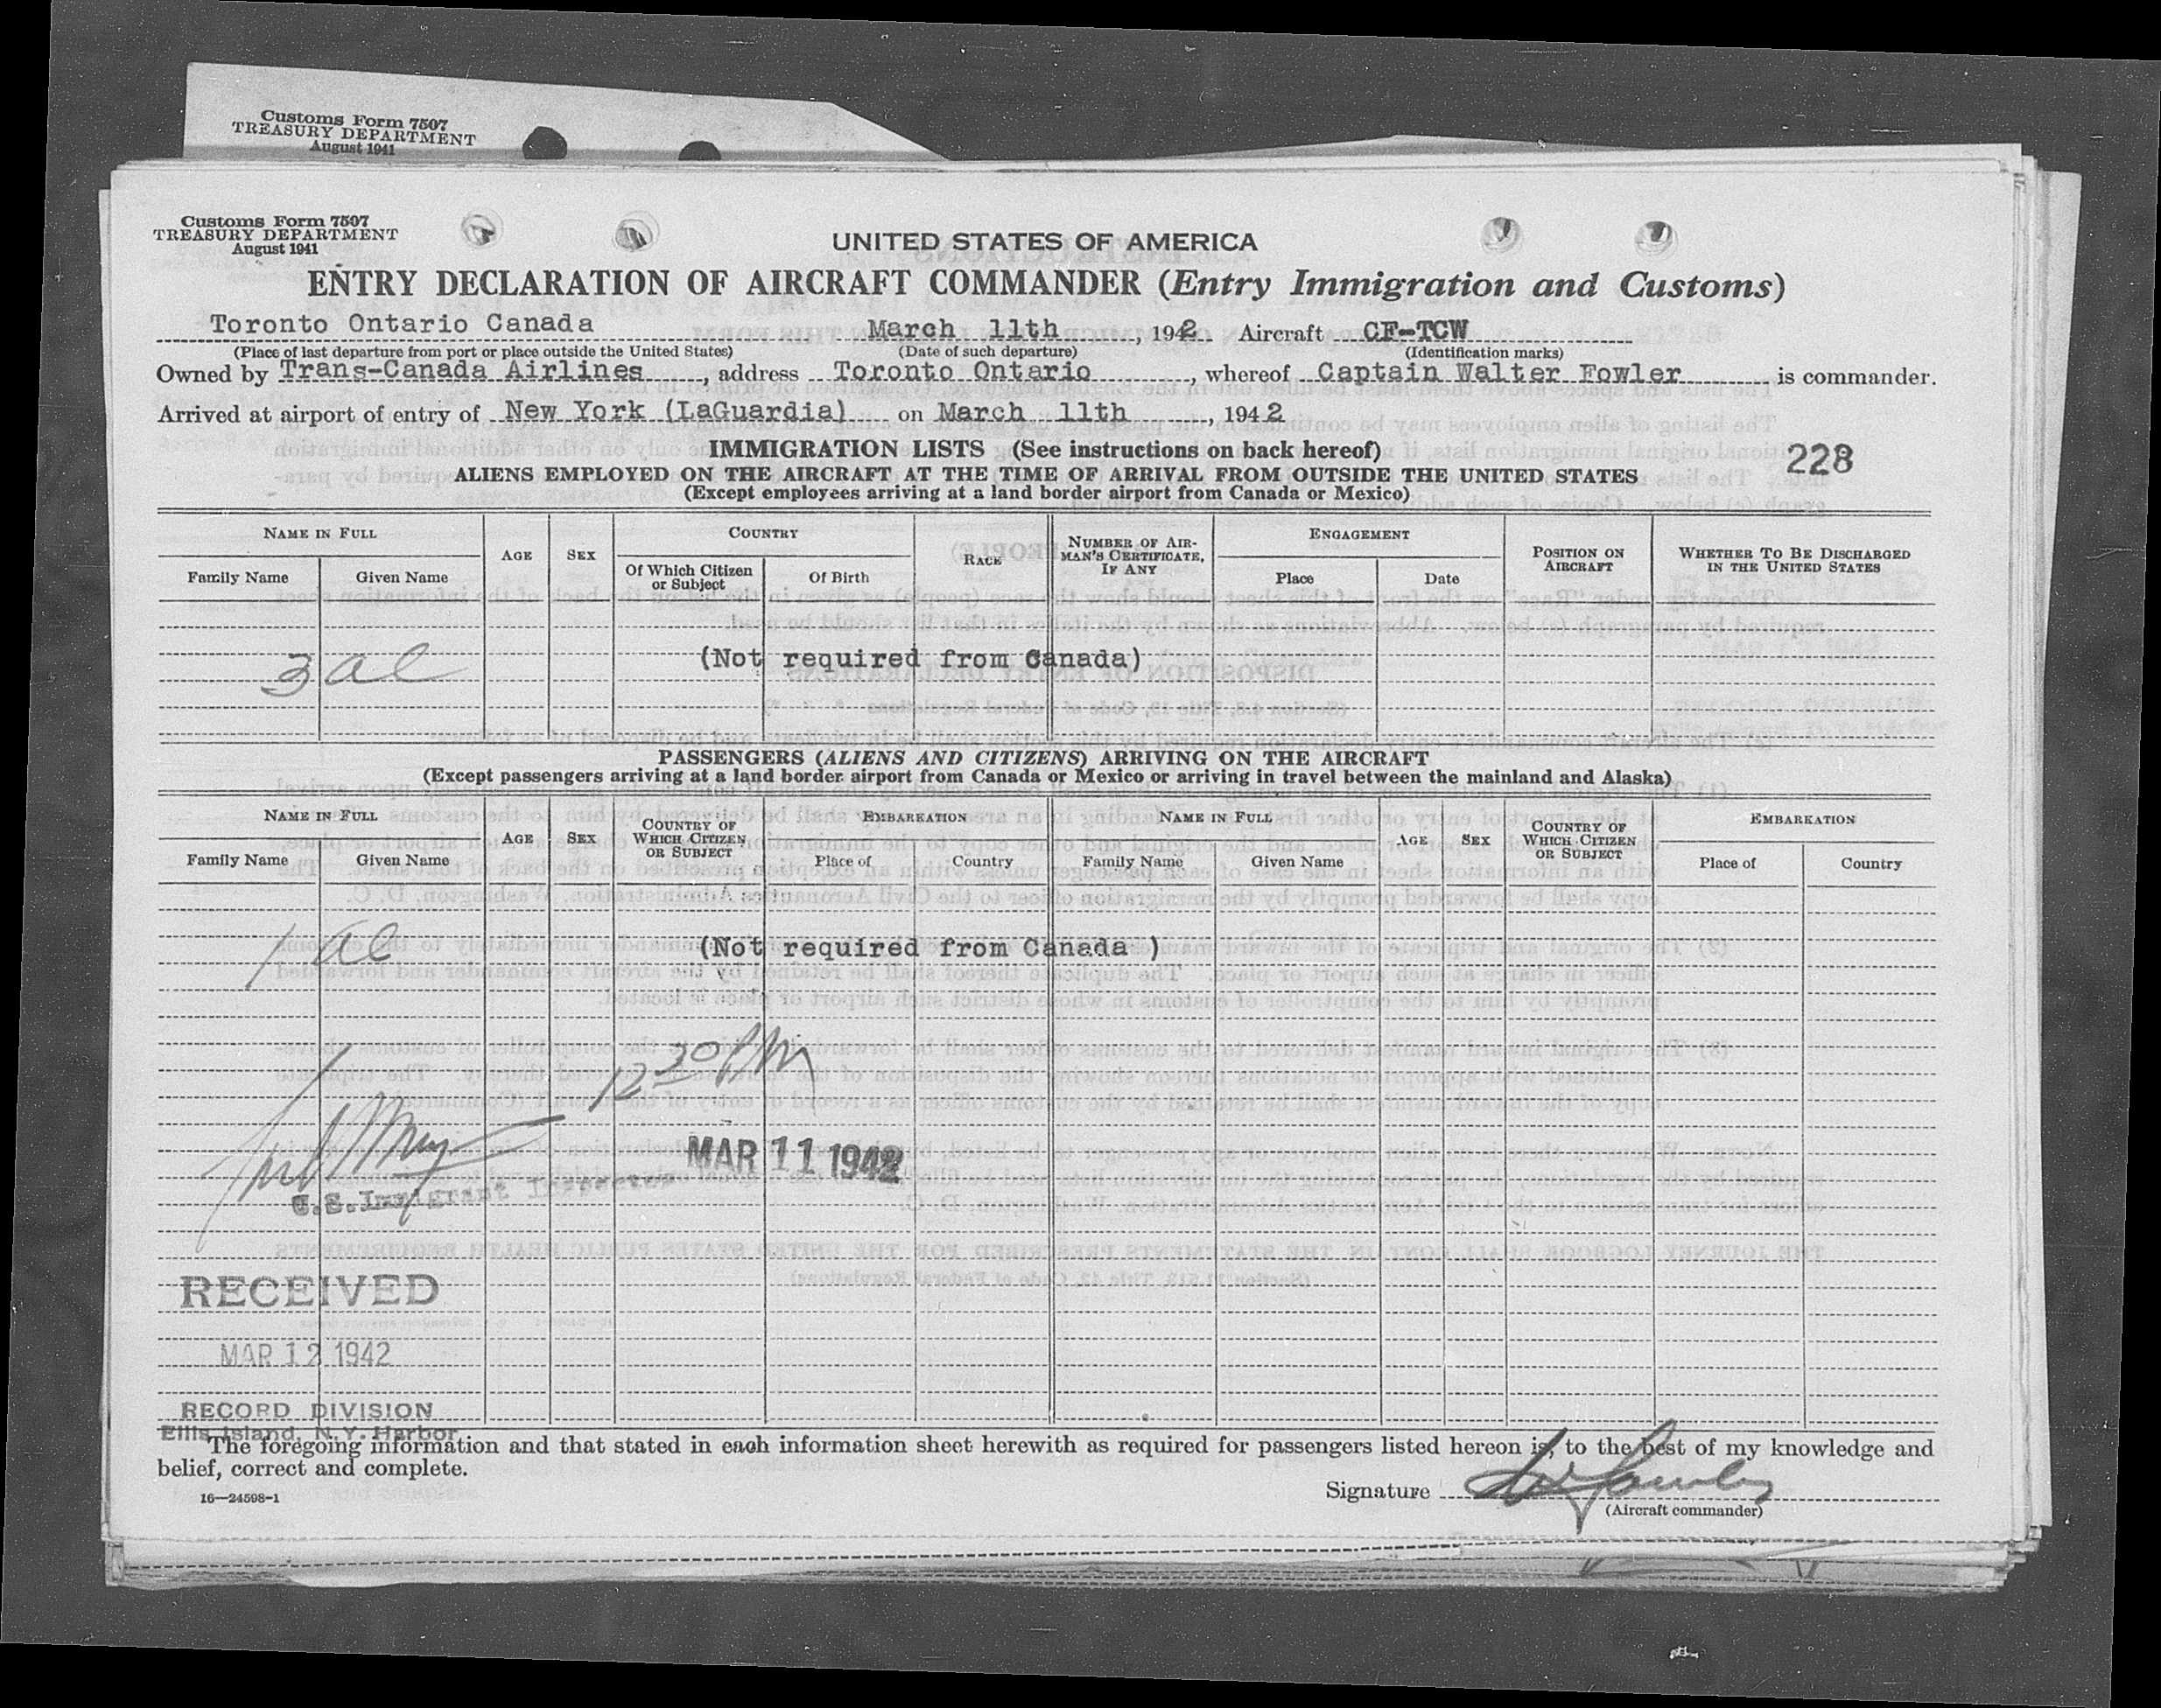 Customs Form 7507
TREASURY DEPARTMENT
August 1941
Customs Form 7507
TREASURY DEPARTMENT
August 1941
UNITED STATES OF AMERICA
ENTRY DECLARATION OF AIRCRAFT COMMANDER (Entry Immigration and Customs)
Toronto Ontario Canada March 11th, 1942 Aircraft CF-TCW
(Place of last departure from port or place outside the United States) (Date of such departure) (Identification marks)
Owned by Trans-Canada Airlines, address Toronto Ontario, whereof Captain Walter Fowler is commander.
Arrived at airport of entry of New York (LaGuardia) on March 11th, 1942
IMMIGRATION LISTS (See instructions on back hereof)
228
ALIENS EMPLOYED ON THE AIRCRAFT AT THE TIME OF ARRIVAL FROM OUTSIDE THE UNITED STATES
(Except employees arriving at a land border airport from Canada or Mexico)
NAME IN FULL AGE SEX COUNTRY RACE NUMBER OF AIRMAN'S CERTIFICATE, IF ANY ENGAGEMENT POSITION ON AIRCRAFT WHETHER TO BE DISCHARGED IN THE UNITED STATES
Family Name Given Name Of Which Citizen or Subject Of Birth Place Date
3 al (Not required from Canada)
PASSENGERS (ALIENS AND CITIZENS) ARRIVING ON THE AIRCRAFT
(Except passengers arriving at a land border airport from Canada or Mexico or arriving in travel between the mainland and Alaska)
NAME IN FULL AGE SEX COUNTRY OF WHICH CITIZEN OR SUBJECT EMBARKATION NAME IN FULL AGE SEX COUNTRY OF WHICH CITIZEN OR SUBJECT EMBARKATION
Family Name Given Name Place of Country Family Name Given Name Place of Country
1 al (Not required from Canada )
12 30 PM
MAR 11 1942
U.S. Immigrant Inspector
RECEIVED
MAR 12 1942
RECORD DIVISION
Ellis Island, N.Y. Harbor
The foregoing information and that stated in each information sheet herewith as required for passengers listed hereon is, to the best of my knowledge and
belief, correct and complete.
16—24598-1
Signature W Fowler
(Aircraft commander)